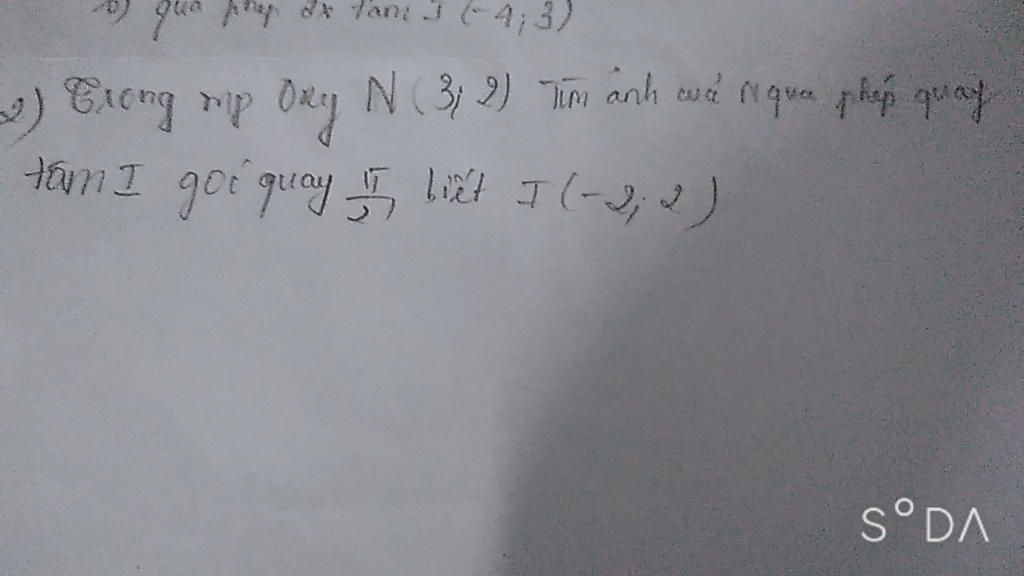 b) qua phép đx tâm I (-4; 3)
2) Trong mp Oxy N (3; 2) Tìm ảnh cuả N qua phép quay
tâm I goí quay π/2, biết I (-2; 2)
S°DA